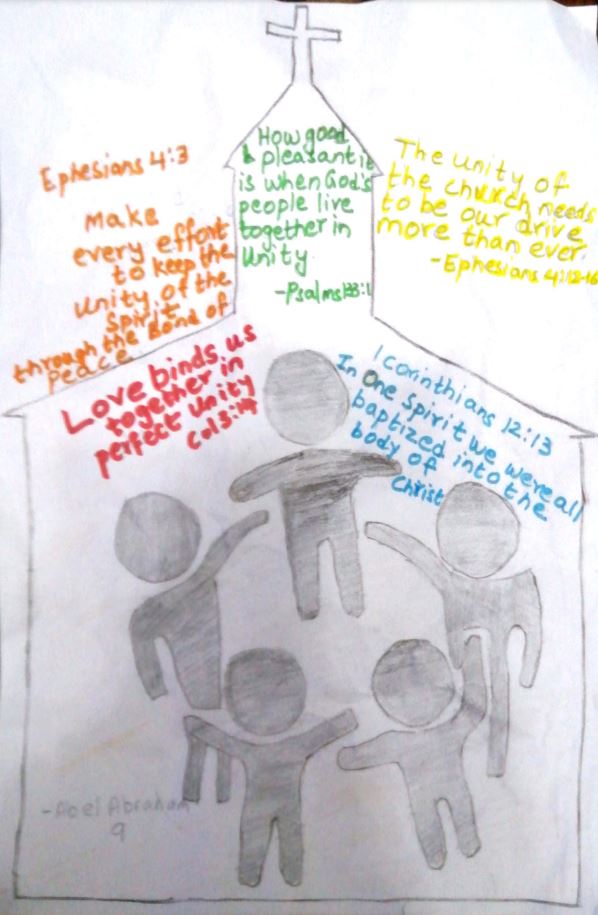 Ephesians 4:3
Make
every effort
to keep the
unity of the
Spirit
through the Bond of
Peace
How good
& pleasant it
is when God's
people live
together in
Unity
-Psalms 133:1
The unity of
the church needs
to be our drive
more than ever.
-Ephesians 4:12-16
Love binds us
together in
perfect unity
Col 3:14
1 Corinthians 12:13
In One Spirit we were all
baptized into the
body of
Christ
-Abel Abraham
9